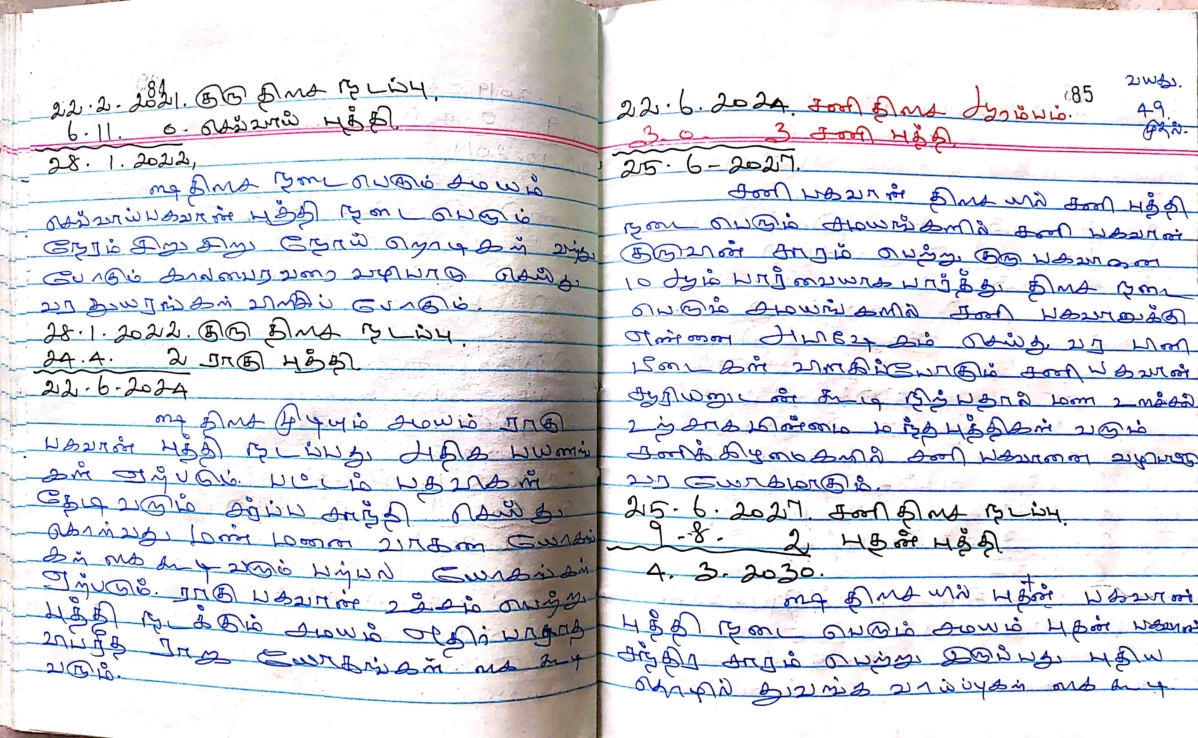 84
22.2.2021. குரு திசை நடப்பு.
6.11. 0. செவ்வாய் புத்தி
28.1.2022,
ஷை திசை நடை பெறும் சமயம்
செவ்வாய் பகவான் புத்தி நடை பெறும்
நேரம் சிறு சிறு நோய் நொடிகள் வந்து
போகும் காலபைரவரை வழிபாடு செய்து
வர துயரங்கள் விலகிப் போகும்.
28.1.2022. குரு திசை நடப்பு.
24.4. 2 ராகு புத்தி.
22.6-2024
ஷை திசை முடியும் சமயம் ராகு
பகவான் புத்தி நடப்பது அதிக பயணங்
கள் ஏற்படும். பட்டம் பதவிகள்
தேடி வரும் சர்ப்ப சாந்தி செய்து
கொள்வது மண் மனை வாகன யோகங்
கள் கை கூடி வரும் பற்பல யோகங்கள்
ஏற்படும். ராகு பகவான் உச்சம் பெற்று
புத்தி நடக்கும் சமயம் எதிர் பாராத
விபரீத ராஜ யோகங்கள் கை கூடி
வரும்.
85
வயது.
49
முதல்.
22.6.2024. சனி திசை ஆரம்பம்.
3.0. 3 சனி புத்தி
25.6-2027.
சனி பகவான் திசை யில் சனி புத்தி
நடை பெறும் சமயங்களில் சனி பகவான்
குருவின் சாரம் பெற்று குரு பகவானை
10 ஆம் பார்வையாக பார்த்து திசை நடை
பெறும் சமயங்களில் சனி பகவானுக்கு
எண்ணை அபிஷேகம் செய்து வர பிணி
பீடைகள் விலகிப்போகும் சனி பகவான்
சூரியனுடன் கூடி நிற்பதால் மன உளச்சல்
உற்சாகமின்மை மந்தபுத்திகள் வரும்
சனிக்கிழமைகளில் சனி பகவானை வழிபாடு
வர யோகமாகும்.
25.6.2027. சனி திசை நடப்பு.
9-8. 2 புதன் புத்தி
4.3.2030.
ஷை திசை யில் புதன் பகவான்
புத்தி நடை பெறும் சமயம் புதன் பகவான்
சந்திர சாரம் பெற்று இருப்பது புதிய
தொழில் துவங்க வாய்ப்புகள் கை கூடி